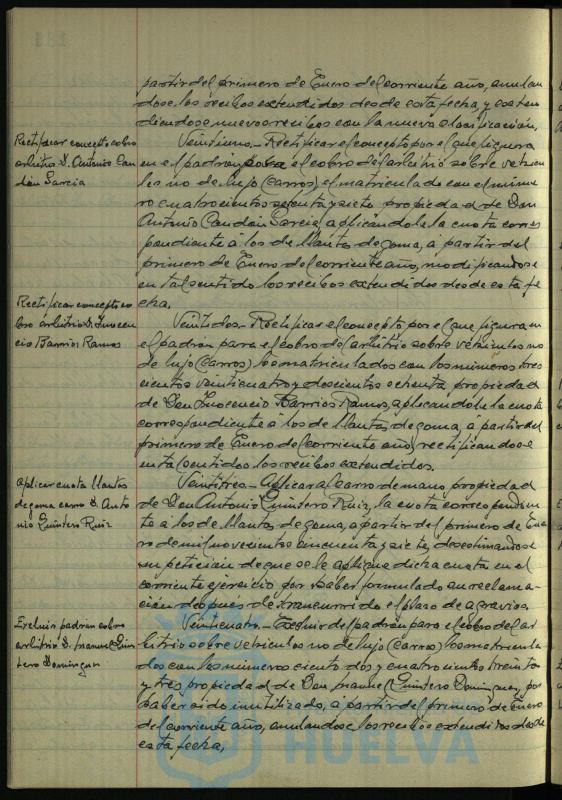 partir del primero de Enero del corriente año, anulan
dose los recibos extendidos desde esta fecha, y exten
diendose nuevos recibos con la nueva clasificación.
Rectificar concepto cobro
arbitrio D. Antonio Can
dán Garcia
Veintiuno.- Rectificar el concepto por el que figura
en el padrón para el cobro del arbitrio sobre vehicu
los no de lujo (carros) el matriculado con el nume
ro cuatrocientos setenta y siete propiedad de Don
Antonio Candán Garcia, aplicándole la cuota corres
pondiente á los de llantas de goma, a partir del
primero de Enero del corriente año, modificandose
en tal sentido los recibos extendidos desde esta fe
cha.
Rectificar concepto co
bro arbitrio D. Inocen
cio Barrios Ramos
Veintidos.- Rectificar el concepto por el que figura en
el padrón para el cobro del arbitrio sobre vehiculos no
de lujo (carros) los matriculados con los numeros tres
cientos veinticuatro y doscientos ochenta, propiedad
de Don Inocencio Barrios Ramos, aplicándole la cuota
correspondiente á los de llantas de goma, á partir del
primero de Enero del corriente año, rectificandose
en tal sentido los recibos extendidos.
Aplicar cuota llantas
de goma carro D. Anto
nio Quintero Ruiz
Veintitres.- Aplicar al carro de mano propiedad
de Don Antonio Quintero Ruiz, la cuota correspondien
te a los de llantas de goma, a partir del primero de Ene
ro de mil novecientos cincuenta y siete, desestimandose
su petición de que se le aplique dicha cuota en el
corriente ejercicio por haber formulado su reclama-
ción después de transcurrido el plazo de agravios.
Excluir padrón cobro
arbitrio D. Manuel Quin
tero Dominguez
Veinticuatro.- Excluir del padrón para el cobro del ar
bitrio sobre vehiculos no de lujo (carros) los matricula
dos con los numeros ciento dos y cuatrocientos treinta
y tres propiedad de Don Manuel Quintero Dominguez, por
haber sido inutilizado, a partir del primero de Enero
del corriente año, anulandose los recibos extendidos desde
esta fecha.
HUELVA